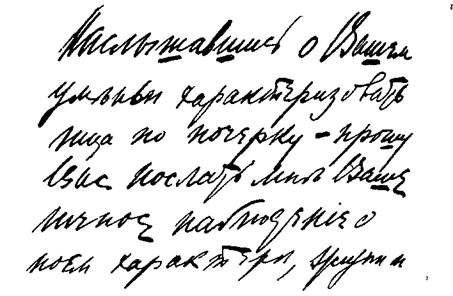 Наслышавшись о Вашем
умѣньи характеризовать
лица по почерку – прошу
Вас послать мнѣ Ваше
личное наблюденіе о
моем характерѣ,